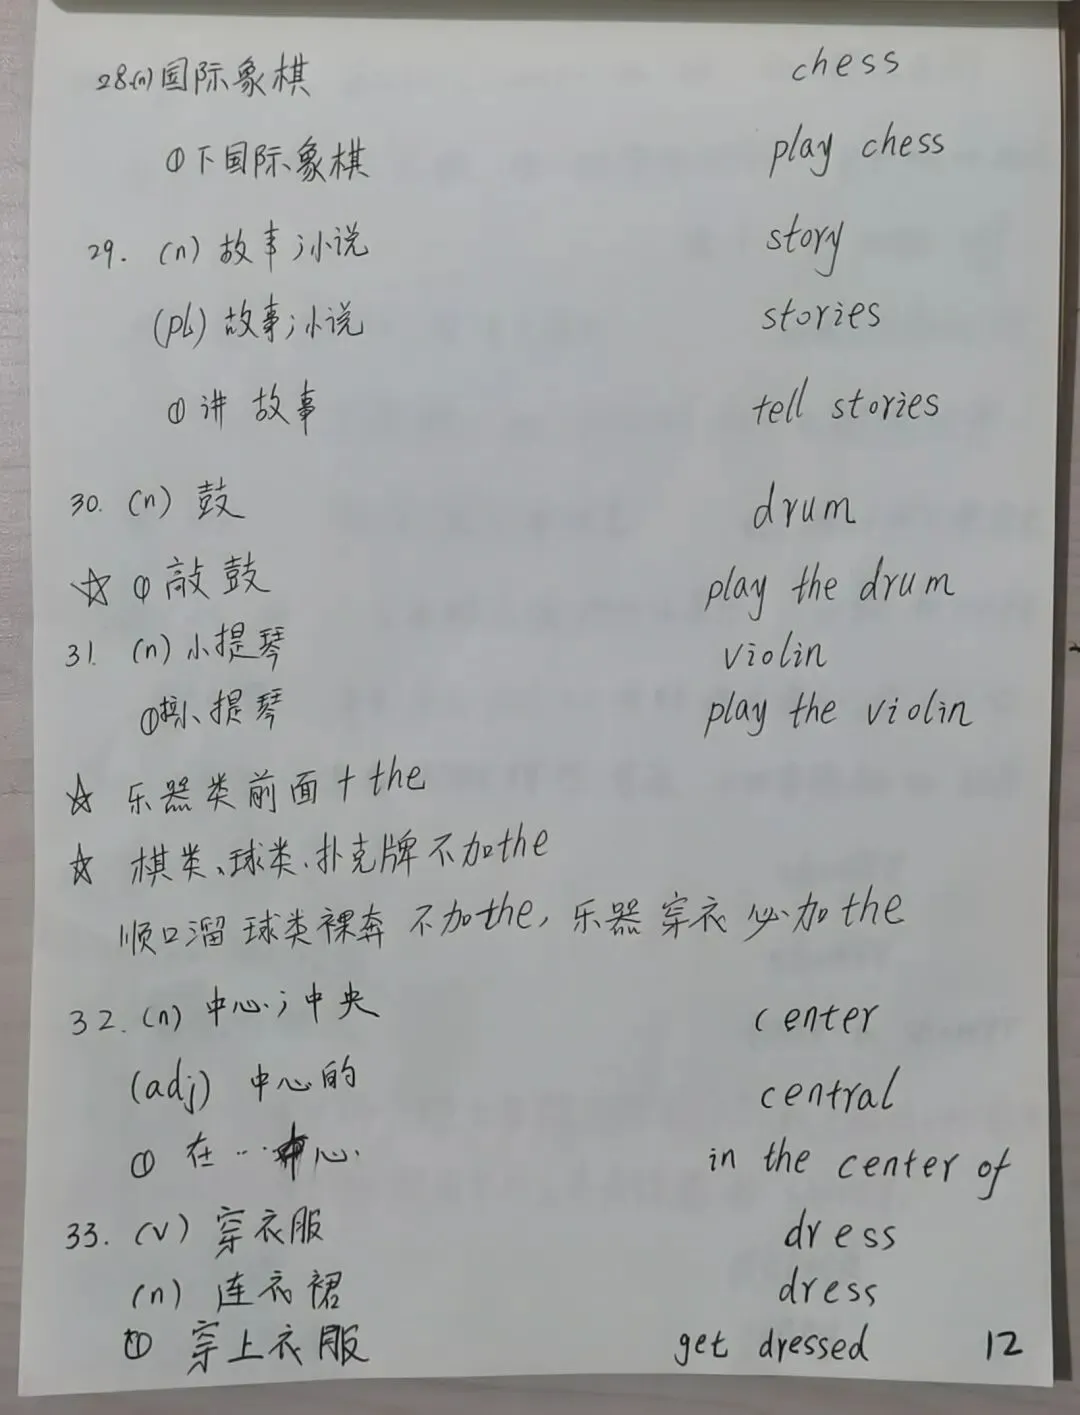 28.(n)国际象棋 chess
①下国际象棋 play chess
29. (n) 故事;小说 story
(pl) 故事;小说 stories
① 讲 故事 tell stories
30. (n) 鼓 drum
☆ ① 敲鼓 play the drum
31. (n) 小提琴 violin
①拉小提琴 play the violin
☆ 乐器类前面+the
☆ 棋类、球类、扑克牌不加the
顺口溜 球类裸奔 不加the, 乐器 穿衣 必加 the
32. (n) 中心;中央 center
(adj) 中心的 central
① 在…中心 in the center of
33. (v) 穿衣服 dress
(n) 连衣裙 dress
① 穿上衣服 get dressed 12